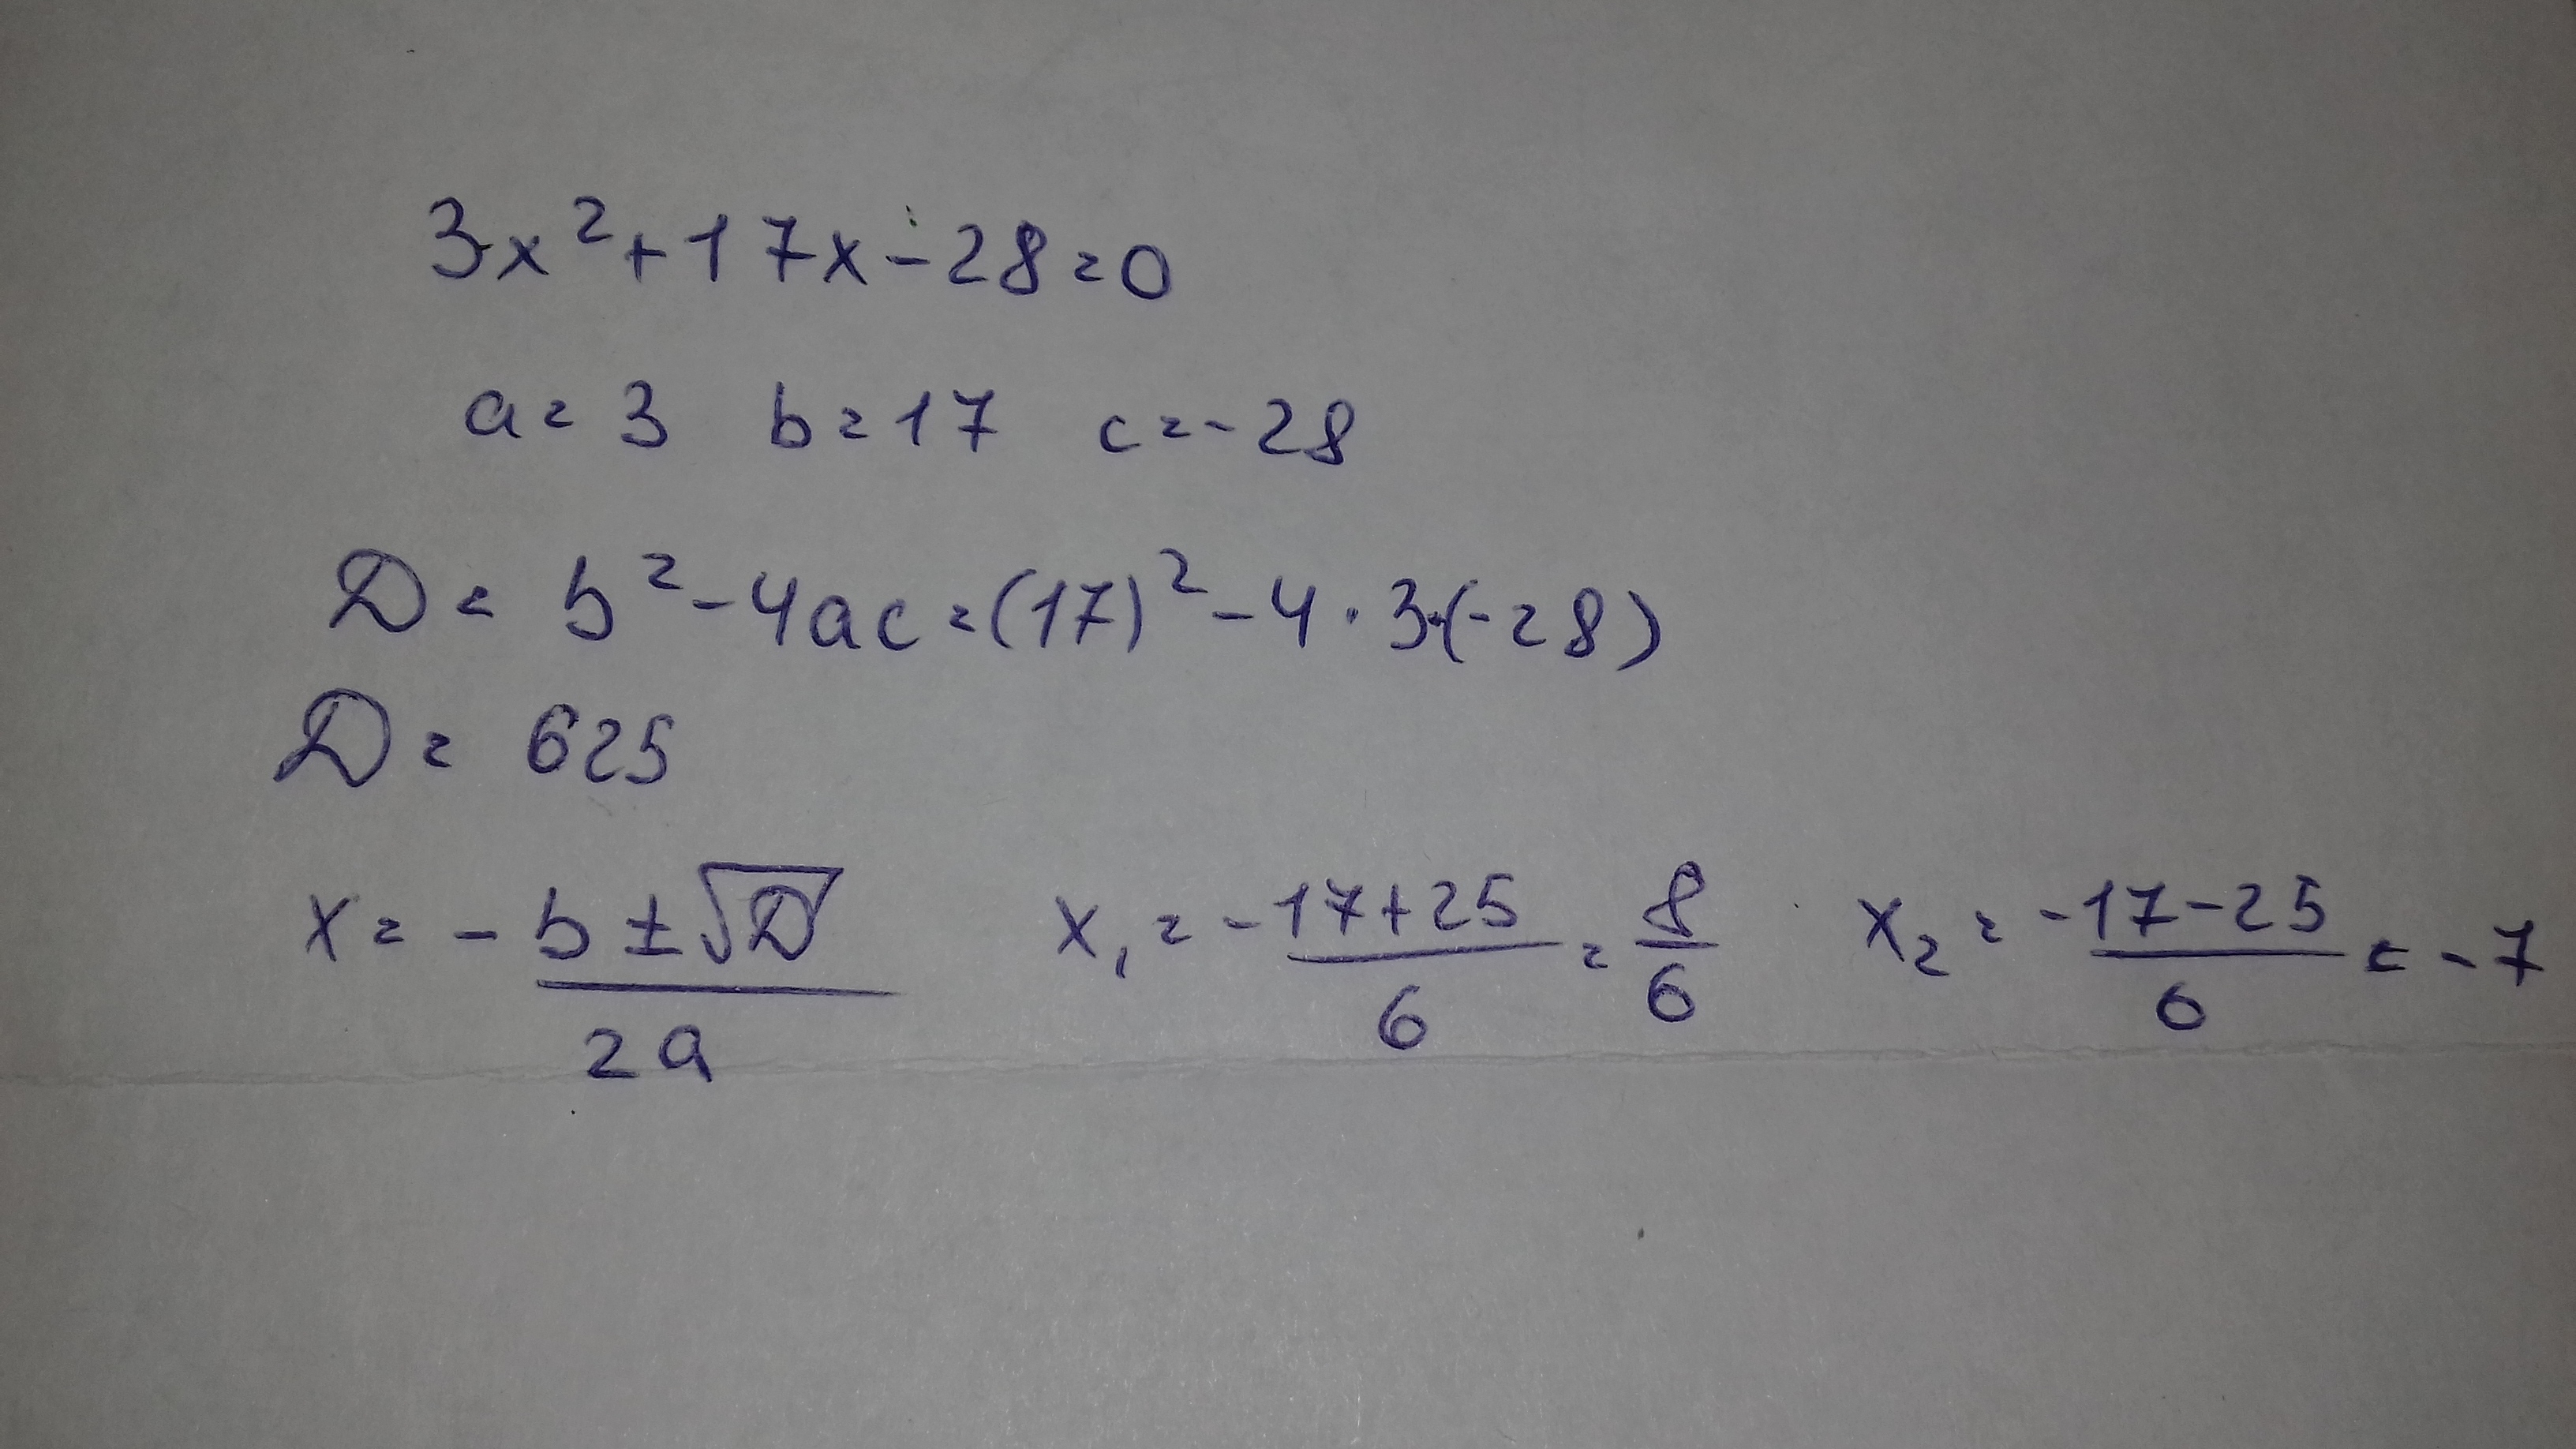 3x²+17x-28=0
a=3 b=17 c=-28
D= b²-4ac=(17)²-4·3·(-28)
D= 625
x= -b±√D/2a x₁= -17+25/6 = 8/6 x₂= -17-25/6 = -7